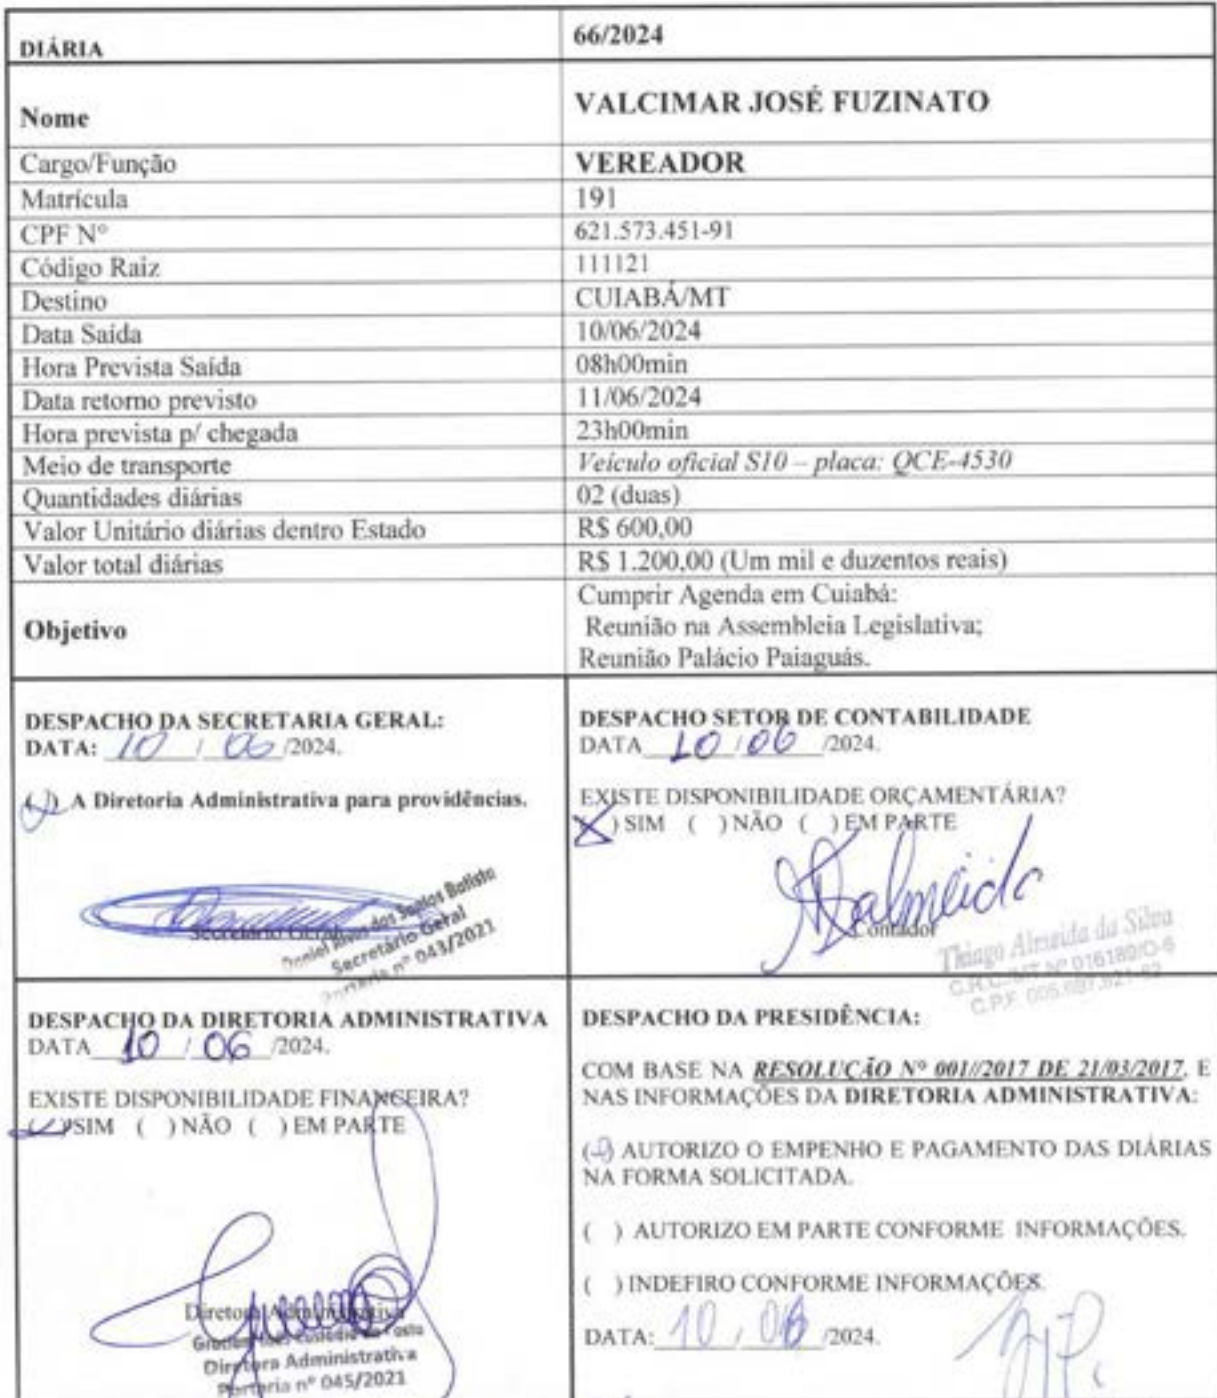 DIÁRIA 66/2024
Nome VALCIMAR JOSÉ FUZINATO
Cargo/Função VEREADOR
Matrícula 191
CPF Nº 621.573.451-91
Código Raiz 111121
Destino CUIABÁ/MT
Data Saída 10/06/2024
Hora Prevista Saída 08h00min
Data retorno previsto 11/06/2024
Hora prevista p/ chegada 23h00min
Meio de transporte Veículo oficial S10 – placa: QCE-4530
Quantidades diárias 02 (duas)
Valor Unitário diárias dentro Estado R$ 600,00
Valor total diárias R$ 1.200,00 (Um mil e duzentos reais)
Objetivo
Cumprir Agenda em Cuiabá:
Reunião na Assembleia Legislativa;
Reunião Palácio Paiaguás.
DESPACHO DA SECRETARIA GERAL:
DATA: 10 / 06 /2024.
( ) A Diretoria Administrativa para providências.
Secretário Geral
Daniel Alves dos Santos Batista
Secretário Geral
Portaria nº 043/2021
DESPACHO SETOR DE CONTABILIDADE
DATA 10 / 06 /2024.
EXISTE DISPONIBILIDADE ORÇAMENTÁRIA?
(X) SIM ( ) NÃO ( ) EM PARTE
Almeida
Contador
Thiago Almeida da Silva
C.R.C./MT Nº 016189/O-6
DESPACHO DA DIRETORIA ADMINISTRATIVA
DATA 10 / 06 /2024.
EXISTE DISPONIBILIDADE FINANCEIRA?
( ) SIM ( ) NÃO ( ) EM PARTE
Diretora Administrativa
Diretora Administrativa
Portaria nº 045/2021
DESPACHO DA PRESIDÊNCIA:
COM BASE NA RESOLUÇÃO Nº 001//2017 DE 21/03/2017, E
NAS INFORMAÇÕES DA DIRETORIA ADMINISTRATIVA:
( ) AUTORIZO O EMPENHO E PAGAMENTO DAS DIÁRIAS
NA FORMA SOLICITADA.
( ) AUTORIZO EM PARTE CONFORME INFORMAÇÕES.
( ) INDEFIRO CONFORME INFORMAÇÕES.
DATA: 10 / 06 /2024.